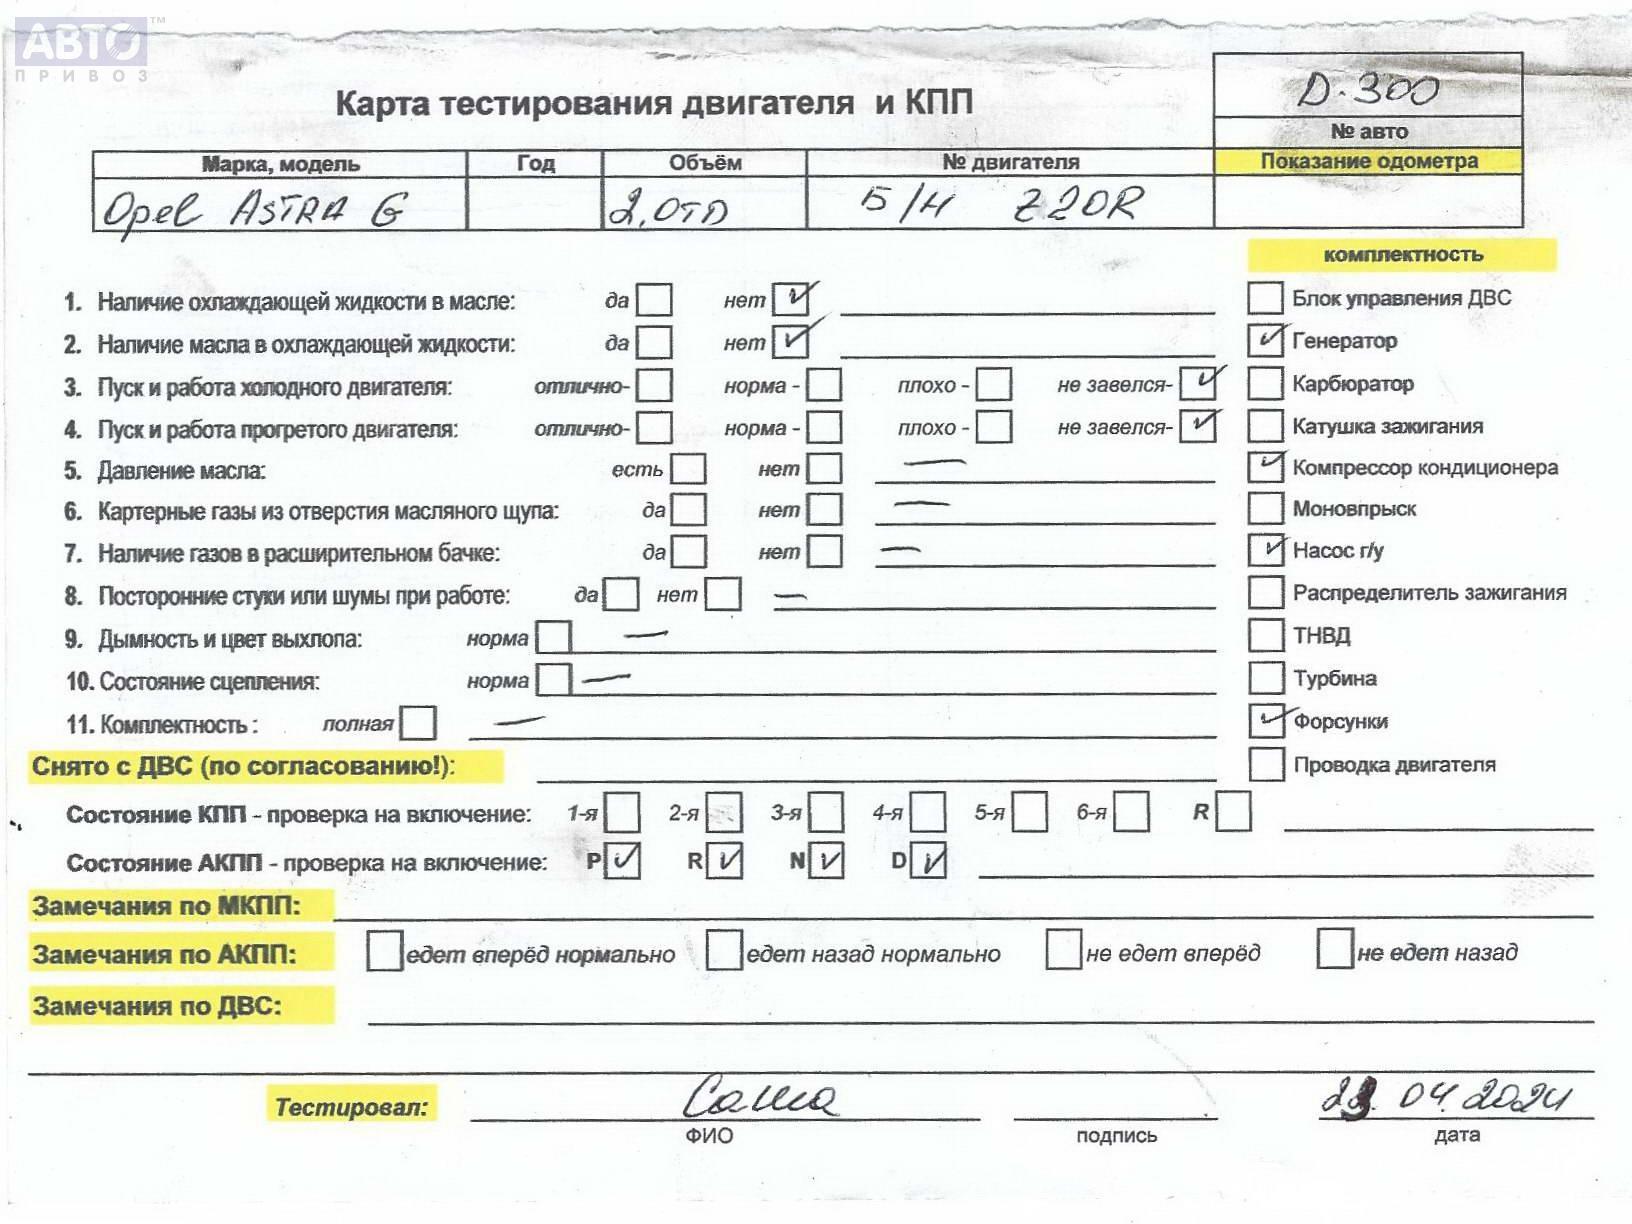 АВТО™
ПРИВОЗ
Карта тестирования двигателя и КПП
D-300
№ авто
Марка, модель Год Объём № двигателя Показание одометра
Opel ASTRA G 2,0TD Б/Н Z20R
комплектность
1. Наличие охлаждающей жидкости в масле: да нет ✓ Блок управления ДВС
2. Наличие масла в охлаждающей жидкости: да нет ✓ ✓ Генератор
3. Пуск и работа холодного двигателя: отлично- норма - плохо - не завелся- ✓ Карбюратор
4. Пуск и работа прогретого двигателя: отлично- норма - плохо - не завелся- ✓ Катушка зажигания
5. Давление масла: есть нет — ✓ Компрессор кондиционера
6. Картерные газы из отверстия масляного щупа: да нет — Моновпрыск
7. Наличие газов в расширительном бачке: да нет — ✓ Насос г/у
8. Посторонние стуки или шумы при работе: да нет — Распределитель зажигания
9. Дымность и цвет выхлопа: норма — ТНВД
10. Состояние сцепления: норма — Турбина
11. Комплектность : полная — ✓ Форсунки
Снято с ДВС (по согласованию!): Проводка двигателя
Состояние КПП - проверка на включение: 1-я 2-я 3-я 4-я 5-я 6-я R
Состояние АКПП - проверка на включение: P ✓ R ✓ N ✓ D ✓
Замечания по МКПП:
Замечания по АКПП: едет вперёд нормально едет назад нормально не едет вперёд не едет назад
Замечания по ДВС:
Тестировал: Саша 23.04.2024
ФИО подпись дата